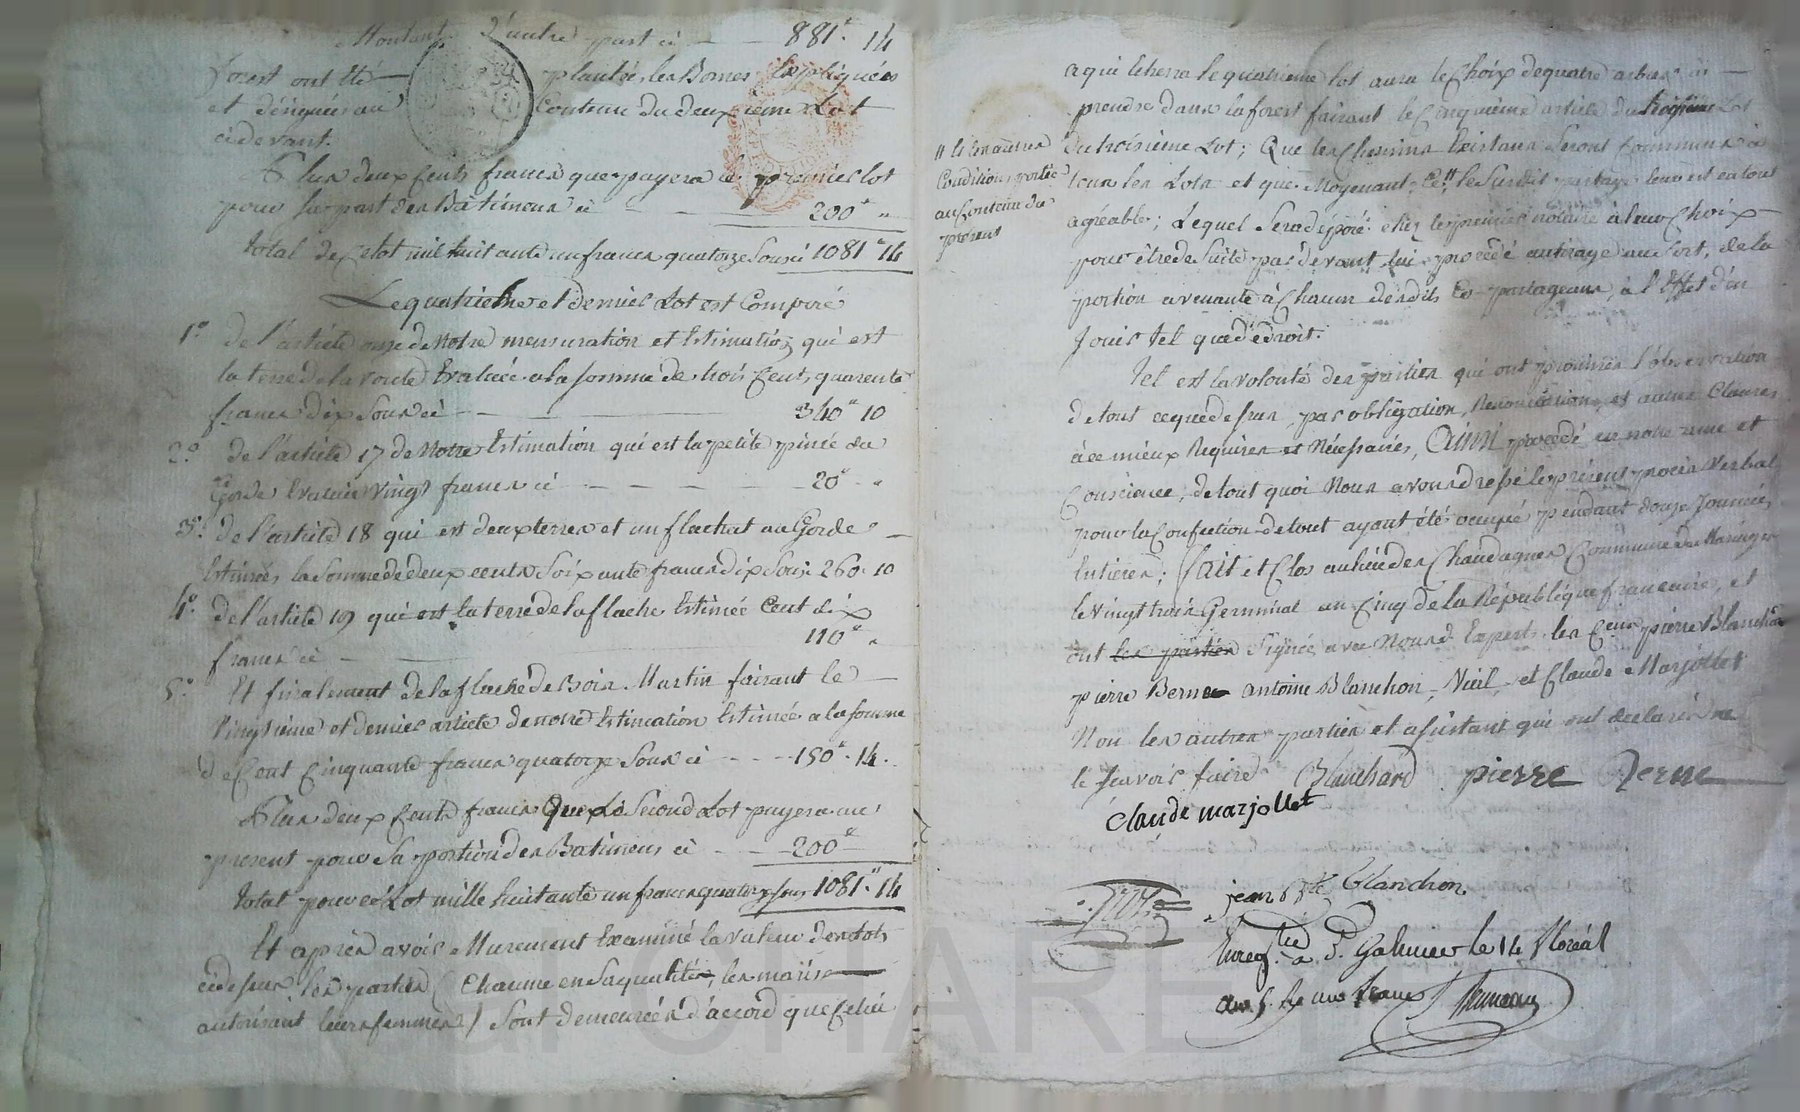 Montant d'autre part ci 881.ᶠ 14
forest ont été plantée les Bornes Expliquées
et désignés au Contenu du deuxieme Lot
cidevant.
Plus deux Cents francs que payera le premier lot
pour sa part des Batimens ci 200ᶠ "
total de Ce lot mil huitante un francs quatorze sous ci 1081ᶠ 14
Le quatrieme et dernier Lot est Composé
1° de l'article onze de Notre mensuration et Estimation qui est
la terre de la voute Evaluée a la somme de trois Cents quarente
francs dix sous ci 340ᶠ 10
2° de l'article 17 de Notre Estimation qui est la petite
Evaluée vingt francs ci 20ᶠ "
3° de l'article 18 qui est deux terres et un flachat au Gorde
Estimées la somme de deux cents soixante francs dix sous 260. 10
4° de l'article 19 qui est la terre de la flache Estimée Cent dix
francs ci 110ᶠ "
5° Et finalement de la flache de Bois Martin faisant le
vingtieme et dernier article de notre Estimation Estimée a la somme
de Cent Cinquante francs quatorze sous ci 150ᶠ. 14.
Plus deux Cents francs Que le Second Lot payera au
present pour sa portion des Batimens ci 200ᶠ
total pour ce Lot mille huitante un francs quatorze sous 1081.ᶠ 14
Et après avoir Murement Examiné la valeur des lots
cidessus, les parties (Chacune en sa qualité, les maris
autorisant leurs femmes) sont demeurées d'accord que Celui
a qui teherra le quatrieme lot aura le Choix de quatre arbres à
prendre dans la forest faisant le Cinquieme article du troisieme Lot
du troisieme Lot; Que les Chemins Existans seront Communs à
tous les Lots et que Moyenant Ce " le susdit partage leur est en tout
" et les autres
Conditions portées
au Contenu du
présent
agréable; Lequel sera déposé chez le premier notaire à leur Choix
pour être de suite par devant lui procédé au tirage au sort, de la
portion avenante à Chacun desdits Co-partageans, à l'Effet d'en
Jouir tel que de droit.
Tel est la volonté des parties qui ont promis l'observation
de tout ce que dessus, par obligation, Renonciations, et autres Clauses
à ce mieux Requises et Nécessaires, Ainsi procédé en notre ame et
Conscience; de tout quoi Nous avons dressé le présent procès verbal,
pour la Confection de tout ayant étés occupés pendant douze Journées
Entieres; fait et Clos au lieu des Chaudagnes Commune de Maringes
le vingt trois Germinal an Cinq de la République francaise, et
ont les parties Signées avec Nousd. Experts les Cens pierre Blanchard
pierre Berne antoine Blanchon, Vial, et Claude Marjollet
Non les autres parties et assistant qui ont declarés ne
le scavoir faire Blanchard pierre Berne
claude marjollet
jean Bte blanchon.
Enregtré à St Galmier le 14 floréal